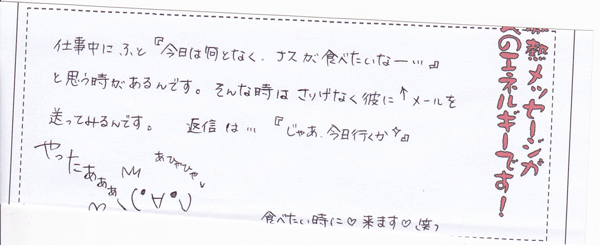 熱メッセージが
のエネルギーです!
仕事中にふと『今日は何となく、ナスが食べたいなー…』
と思う時があるんです。そんな時はさりげなく彼に↑メールを
送ってみるんです。 返信は…『じゃあ、今日行くか☆』
やったあぁぁぁ
あひゃひゃ
\(°∀°)ノ
食べたい時に♡来ます♡(笑)